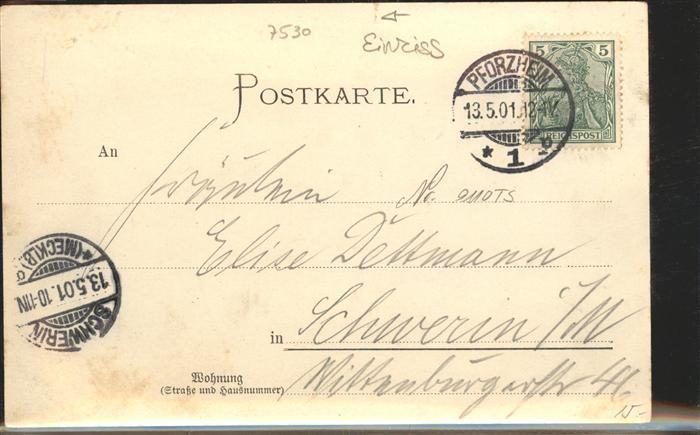 7530
Einriss
POSTKARTE.
5 5
REICHSPOST
PFORZHEIM
13.5.01.12-1N.
* 1 b
An
Fräulein
No. 911075
Elise Dettmann
in Schwerin i/M
Wohnung
(Straße und Hausnummer)
Wittenburgerstr 41.
SCHWERIN
13.5.01.10-11N.
*(MECKLB)
15.-